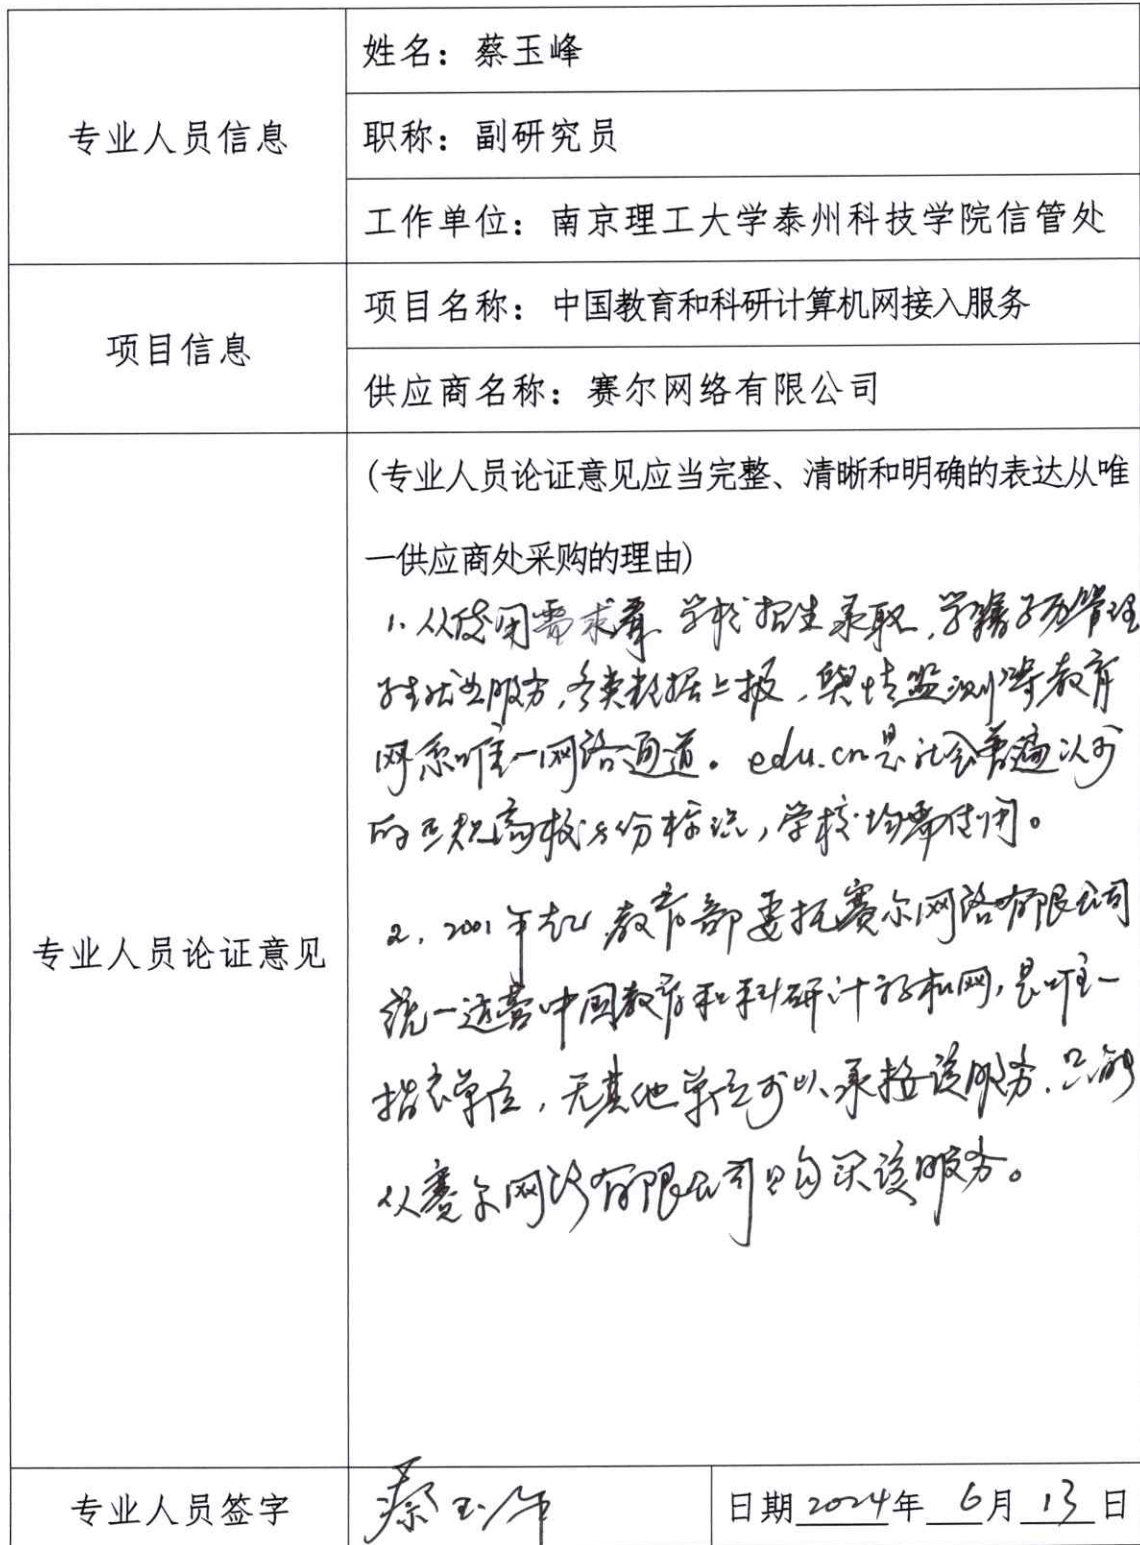 姓名：蔡玉峰
专业人员信息
职称：副研究员
工作单位：南京理工大学泰州科技学院信管处
项目名称：中国教育和科研计算机网接入服务
项目信息
供应商名称：赛尔网络有限公司
(专业人员论证意见应当完整、清晰和明确的表达从唯
一供应商处采购的理由)
1. 从使用需求看 学校招生录取，学籍学历管理
学生就业服务，各类数据上报，舆情监测等教育
网系唯一网络通道。edu.cn是社会普遍认可
的互联高校身份标识，学校均需使用。
专业人员论证意见
2. 2001年起 教育部委托赛尔网络有限公司
统一运营中国教育和科研计算机网，是唯一
指定单位，无其他单位可以承接该服务，只能
从赛尔网络有限公司购买该服务。
专业人员签字
蔡玉峰
日期2024年 6月 13日